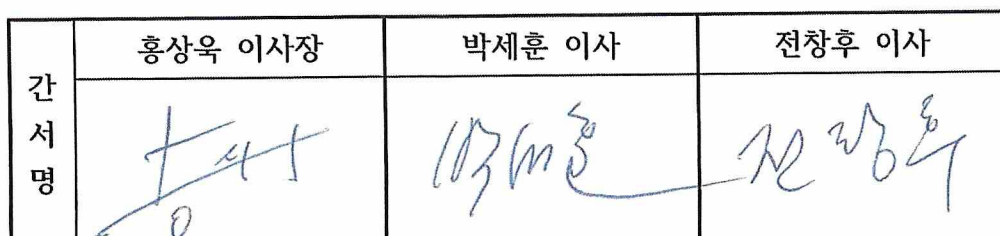 간서명
홍상욱 이사장 박세훈 이사 전창후 이사
박세훈 전창후